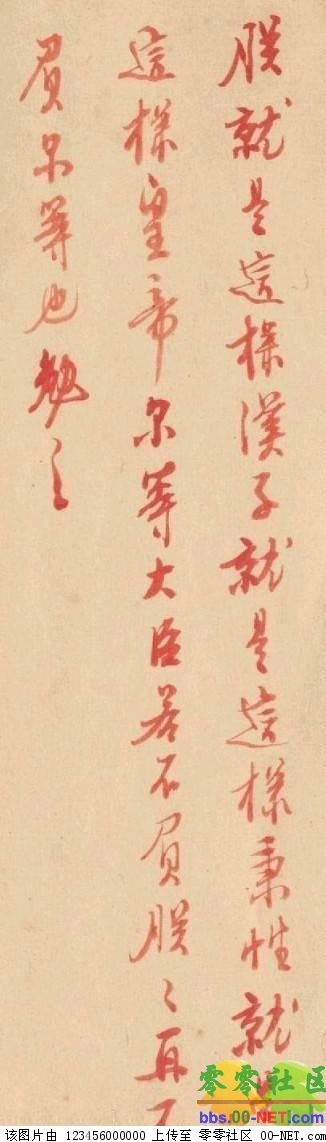 朕就是這樣漢子就是這樣秉性就
這樣皇帝尔等大臣若不負朕〻再不
負尔等也勉之
零零社区
bbs.00-NET.com
该图片由 123456000000 上传至 零零社区 00-NET.c